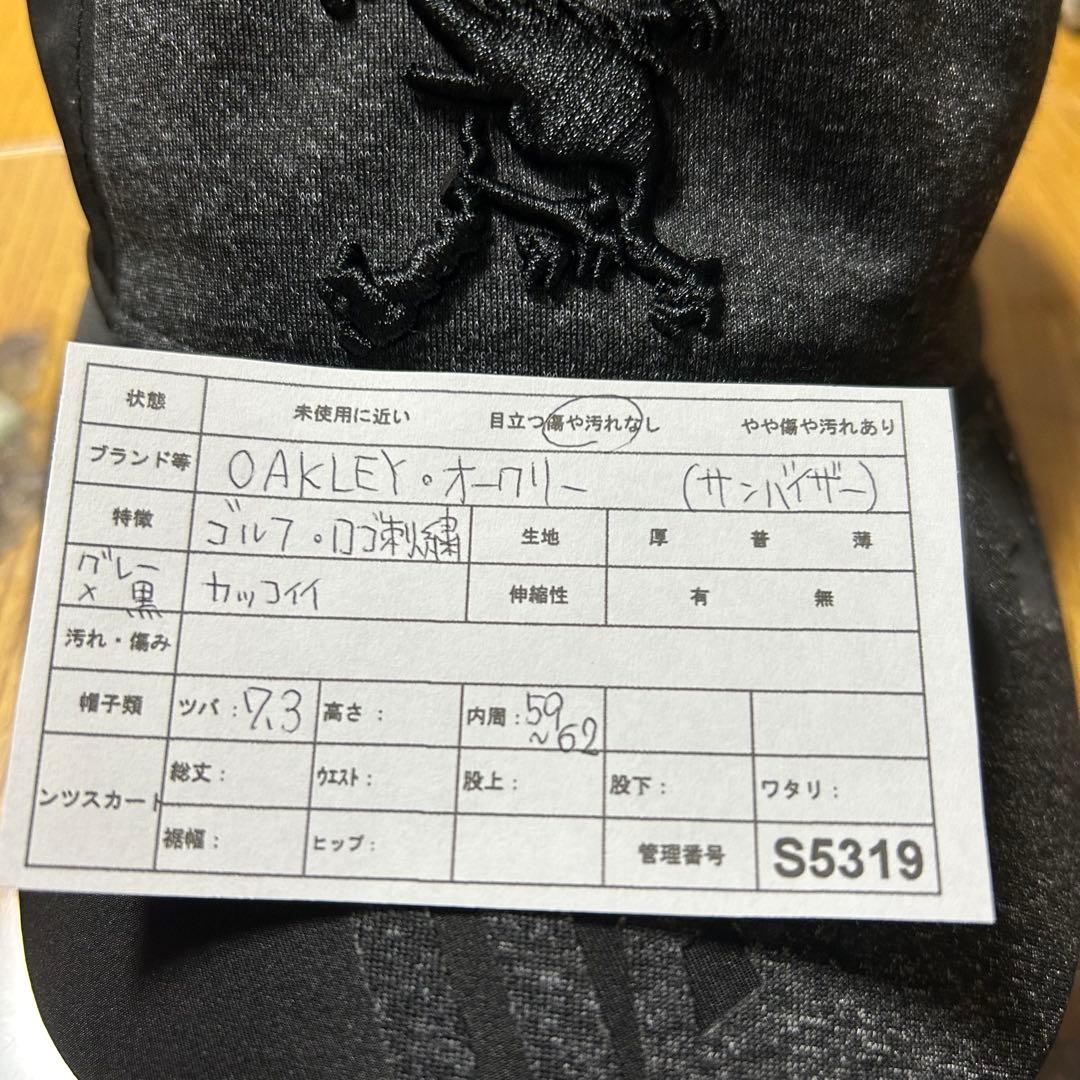 状態 未使用に近い 目立つ傷や汚れなし やや傷や汚れあり
ブランド等 OAKLEY・オークリー (サンバイザー)
特徴 ゴルフ・ロゴ刺繍 生地 厚 普 薄
グレー
× 黒 カッコイイ 伸縮性 有 無
汚れ・傷み
帽子類 ツバ:7.3 高さ: 内周:59
~62
ンツスカート 総丈: ウエスト: 股上: 股下: ワタリ:
裾幅: ヒップ: 管理番号 S5319